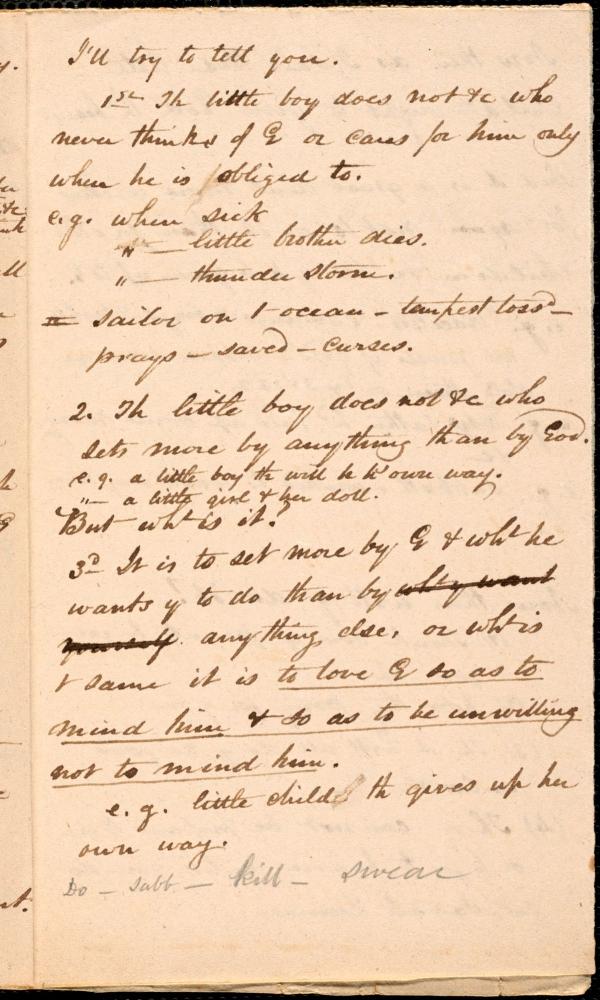 I'll try to tell you.
1st Th little boy does not &c who
never thinks of G or cares for him only
when he is obliged to.
e.g. when sick
" — little brother dies.
" — thunder storm.
= sailor on t ocean — tempest toss'd —
prays — saved — curses.
2. Th little boy does not &c who
sets more by anything than by God.
e.g. a little boy th will h h' own way.
"— a little girl & her doll.
But wht is it?
3d It is to set more by G & wht he
wants y to do than by wht y want
yourself. anything else, or wht is
t same it is to love G so as to
mind him & so as to be unwilling
not to mind him.
e.g. little child th gives up her
own way.
Do — sabb — kill — swear